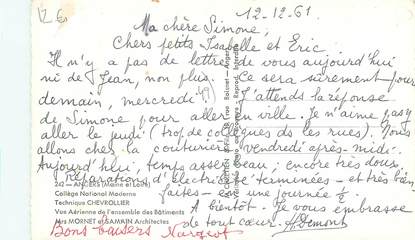 12-12-61
Ma chère Simone,
Chers petits Isabelle et Eric.
Il n'y a pas de lettre de vous aujourd'hui
ni de Jean, non plus. Ce sera sûrement pour
demain, mercredi. J'attends la réponse
de Simone pour aller en ville. Je n'aime pas y
aller le jeudi (trop de collègues ds les rues). Nous
allons chez la couturière vendredi après-midi.
Aujourd'hui, temps assez beau, encore très doux.
Réparations d'électricité terminées - et très bien
faites - en une journée ½
A bientôt. Je vous embrasse
de tout cœur. Demont
Bons baisers
242 - ANGERS (Maine et Loire)
Collège National Moderne
Technique CHEVROLLIER
Vue Aérienne de l'ensemble des Bâtiments
Mrs MORNET et SAMAIN Architectes